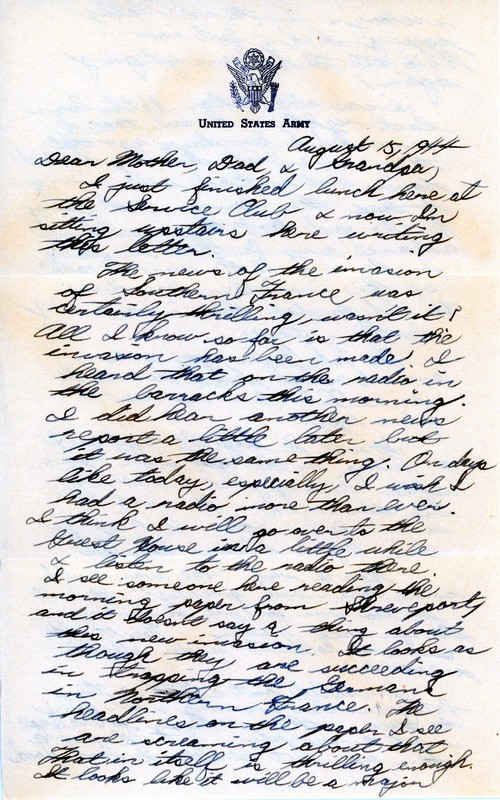 UNITED STATES ARMY
August 15, 1944
Dear Mother, Dad, & Grandpa,
I just finished lunch here at
the Service Club & now I'm
sitting upstairs here writing
this letter.
The news of the invasion
of Southern France was
certainly thrilling, wasn't it!
All I know so far is that the
invasion has been made. I
heard that on the radio in
the barracks this morning.
I did hear another news
report a little later but
it was the same thing. On days
like today, especially, I wish I
had a radio more than ever.
I think I will go over to the
Guest House in a little while
& listen to the radio there.
I see someone here reading the
morning paper from Shreveport,
and it doesn't say a thing about
this new invasion. It looks as
though they are succeeding
in trapping the Germans
in Northern France. The
headlines on the paper I see
are screaming about that
That in itself is thrilling enough.
It looks like it will be a major